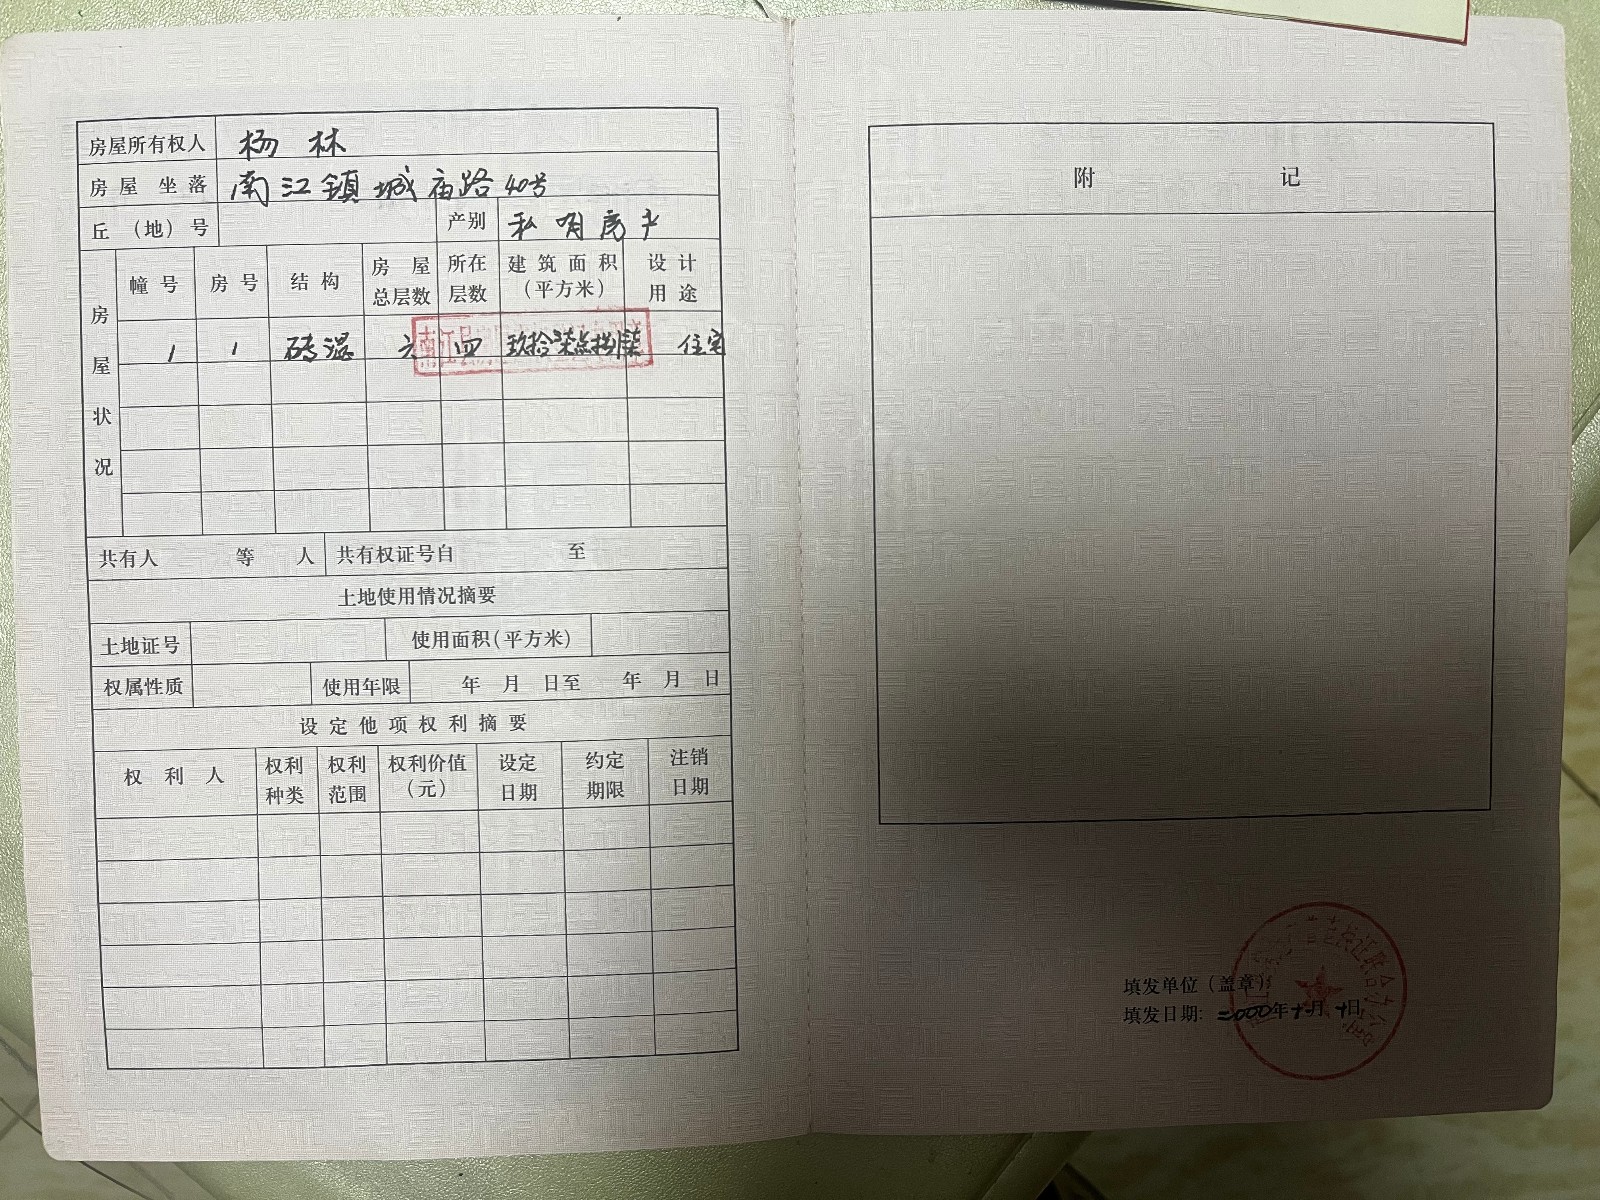 房屋所有权人 杨林
房屋坐落 南江鎮城庙路40号
丘（地）号 产别 私有房产
房屋状况
幢号 房号 结构 房屋总层数 所在层数 建筑面积（平方米） 设计用途
1 1 砖混 六 四 玖拾柒点捌柒 住宅
共有人 等 人 共有权证号自 至
土地使用情况摘要
土地证号 使用面积（平方米）
权属性质 使用年限 年 月 日至 年 月 日
设定他项权利摘要
权利人 权利种类 权利范围 权利价值（元） 设定日期 约定期限 注销日期
附 记
填发单位（盖章）
填发日期：二000年十月十日